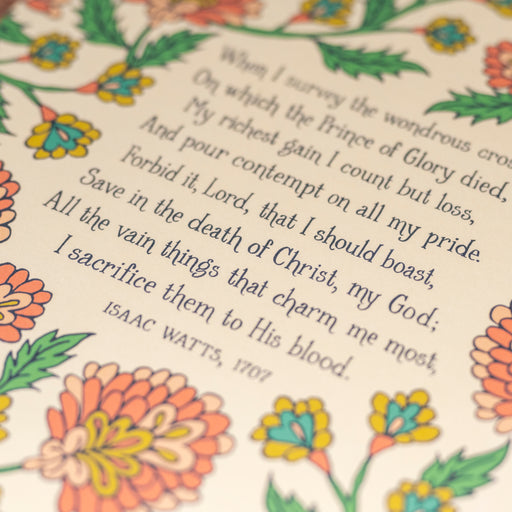 When I survey the wondrous cros
On which the Prince of Glory died,
My richest gain I count but loss,
And pour contempt on all my pride.
Forbid it, Lord, that I should boast,
Save in the death of Christ, my God;
All the vain things that charm me most,
I sacrifice them to His blood.
ISAAC WATTS, 1707